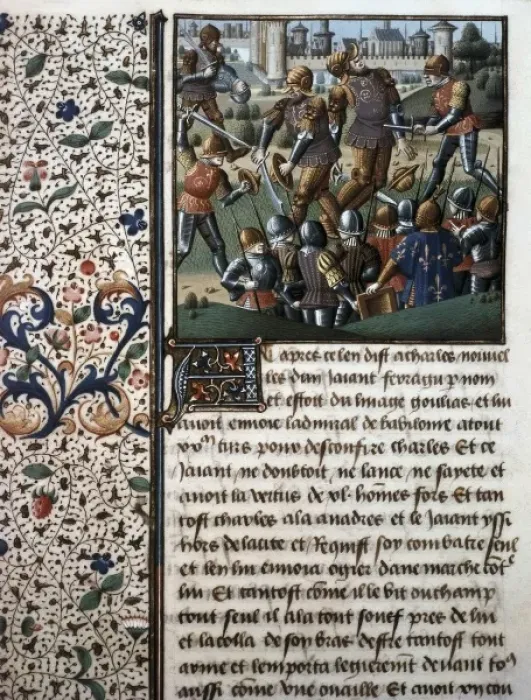 Et apres ce len dist a charles nouuel
les dun Jaiant feuragu p nom
et estoit du linage goulias et lui
auoit enuoie ladmiral de babilonie a tout
turs pour desconfire charles Et ce
Jaiant ne doubtoit ne lance ne sayete et
auoit la vertus de xl. hommes fors Et tan
tost charles ala a nadres et le Jaiant yssi
hors de la cite et Requist soy combatre seul
et len lui enuoia ogier dannemarche cotre
lui Et tantost come il le vit ou champ
tout seul il ala tout souef pres de lui
et lacolla de son bras destre tantost tout
arme et lemporta legierement deuant to9
aussi come vne ouaille Et auoit